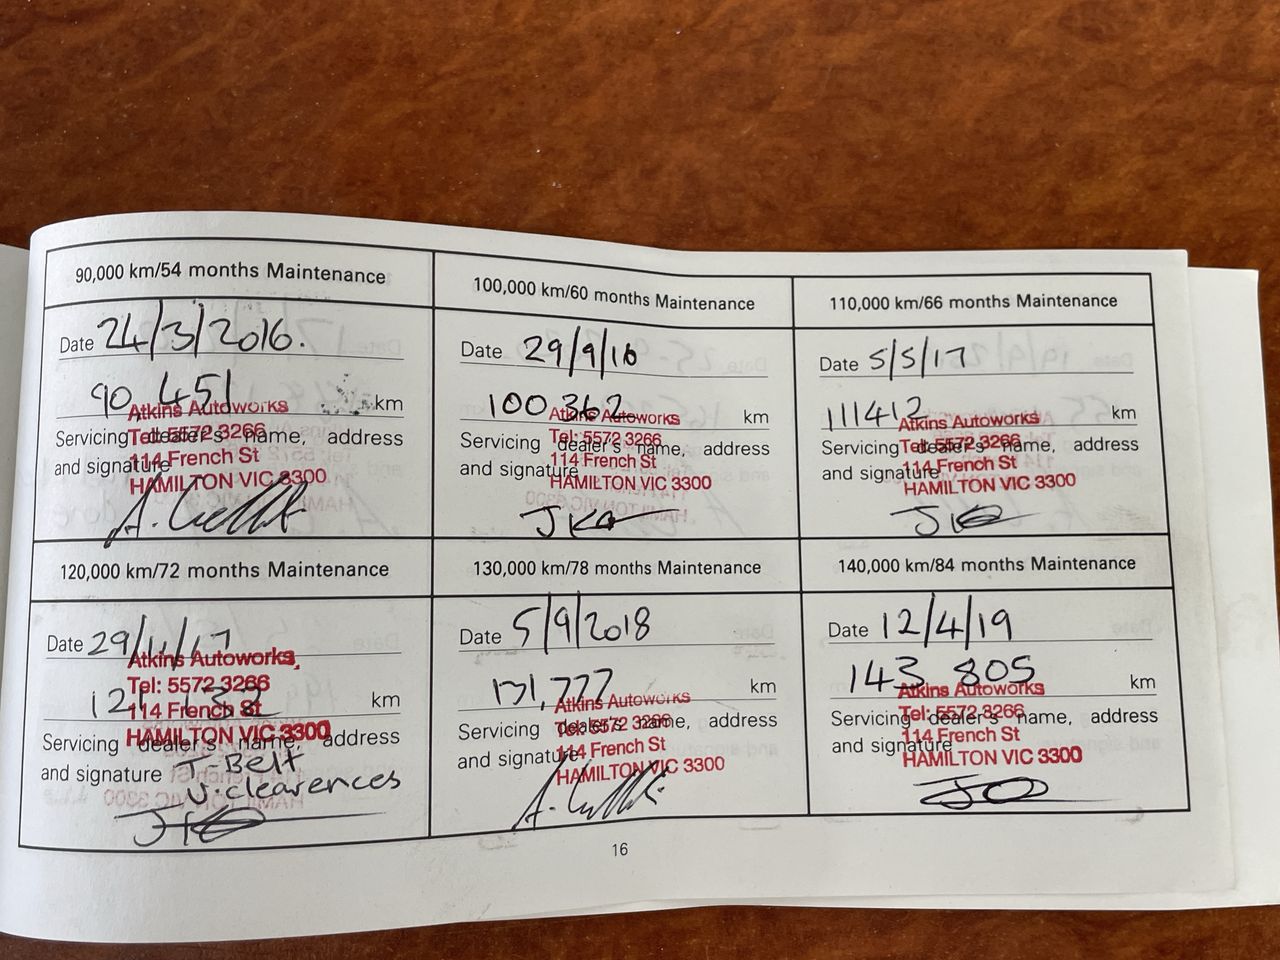 90,000 km/54 months Maintenance
Date 24/3/2016.
90 451 km
Servicing dealer's name, address
and signature
Atkins Autoworks
Tel: 5572 3266
114 French St
HAMILTON VIC 3300
100,000 km/60 months Maintenance
Date 29/9/16
100 362 km
Servicing dealer's name, address
and signature
Atkins Autoworks
Tel: 5572 3266
114 French St
HAMILTON VIC 3300
110,000 km/66 months Maintenance
Date 5/5/17
111412 km
Servicing dealer's name, address
and signature
Atkins Autoworks
Tel: 5572 3266
114 French St
HAMILTON VIC 3300
120,000 km/72 months Maintenance
Date 29/11/17
121 132 km
Servicing dealer's name, address
and signature
Atkins Autoworks
Tel: 5572 3266
114 French St
HAMILTON VIC 3300
T-Belt
V.clearences
130,000 km/78 months Maintenance
Date 5/9/2018
131,777 km
Servicing dealer's name, address
and signature
Atkins Autoworks
Tel: 5572 3266
114 French St
HAMILTON VIC 3300
140,000 km/84 months Maintenance
Date 12/4/19
143 805 km
Servicing dealer's name, address
and signature
Atkins Autoworks
Tel: 5572 3266
114 French St
HAMILTON VIC 3300
16